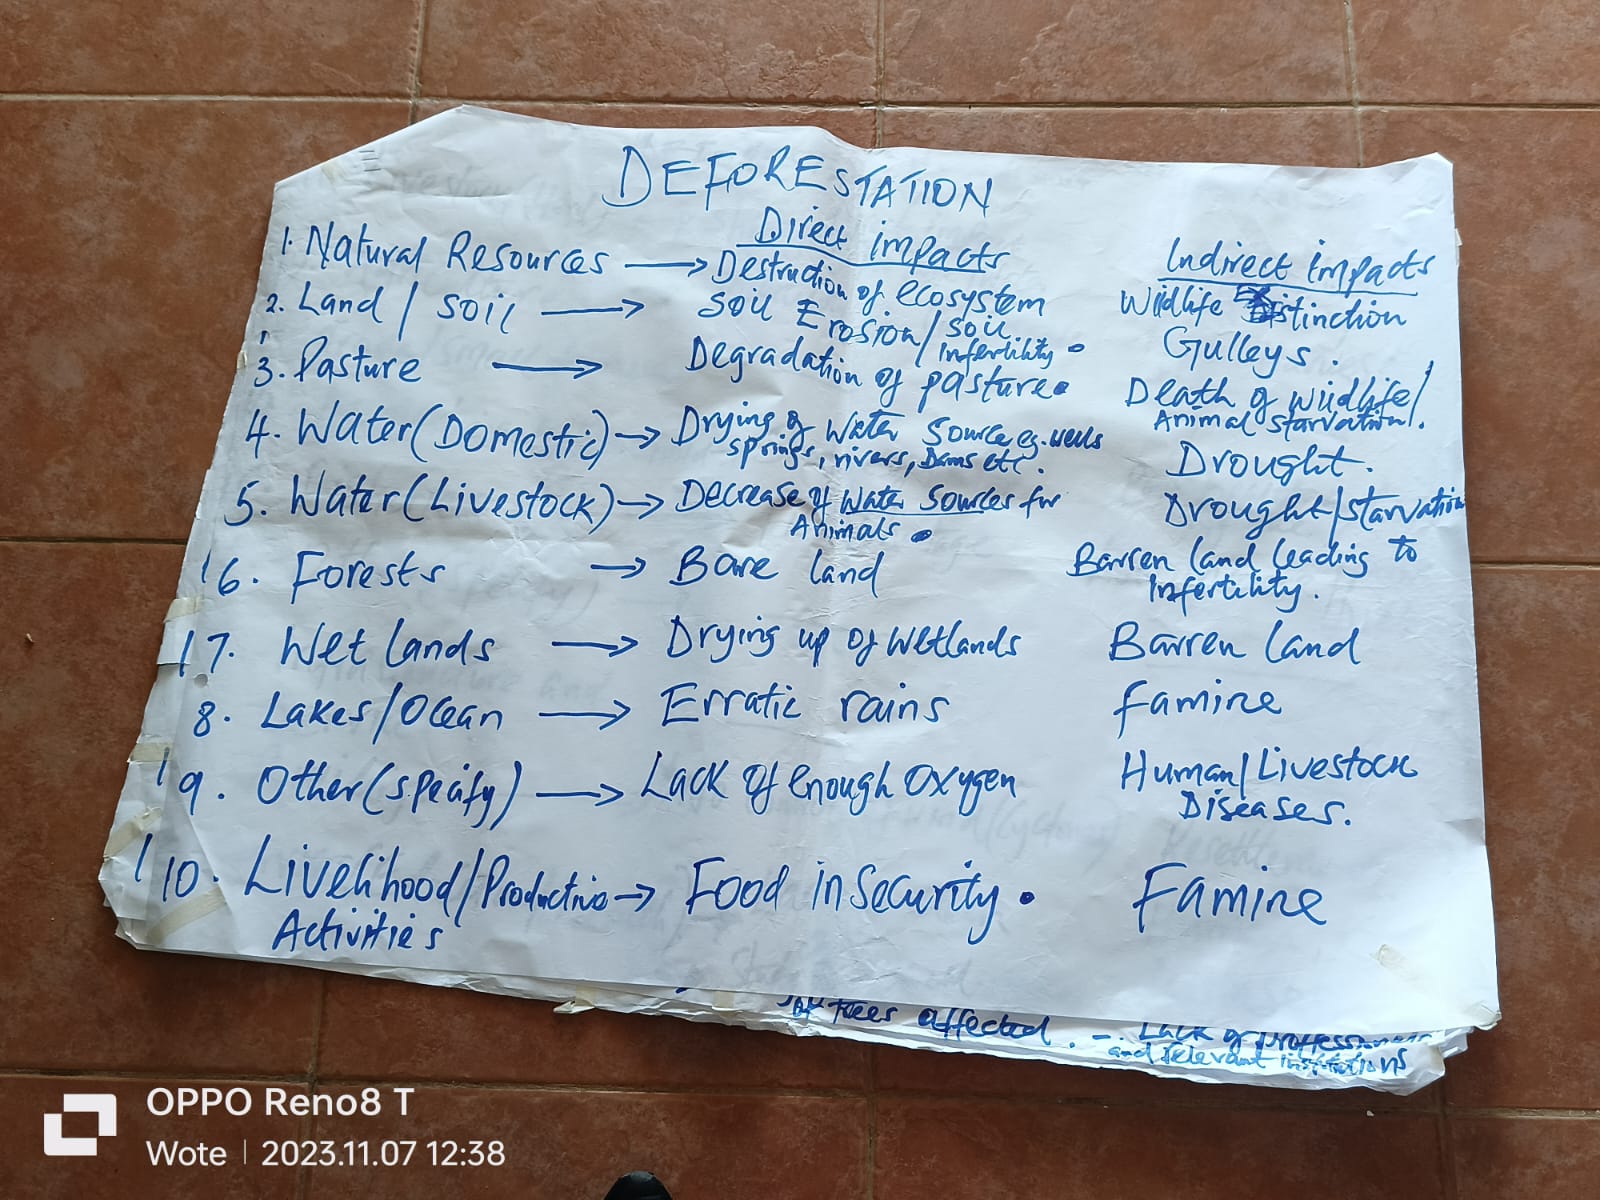 DEFORESTATION
Direct impacts
Indirect impacts
1. Natural Resources → Destruction of ecosystem Wildlife Exstinction
2. Land / Soil → Soil Erosion / Soil Infertility. Gulleys.
3. Pasture → Degradation of pasture. Death of wildlife/
Animal starvation.
4. Water (Domestic) → Drying of Water Source eg. wells
springs, rivers, Dams etc. Drought.
5. Water (Livestock) → Decrease of Water Sources for
Animals. Drought/starvation
6. Forests → Bare land Barren land leading to
Infertility.
7. Wet lands → Drying up of wetlands Barren land
8. Lakes/Ocean → Erratic rains famine
9. Other (specify) → Lack of enough oxygen Human/Livestock
Diseases.
10. Livelihood/Productive → Food insecurity. Famine
Activities
of trees affected. - Lack of professionals
and relevant institutions
OPPO Reno8 T
Wote | 2023.11.07 12:38